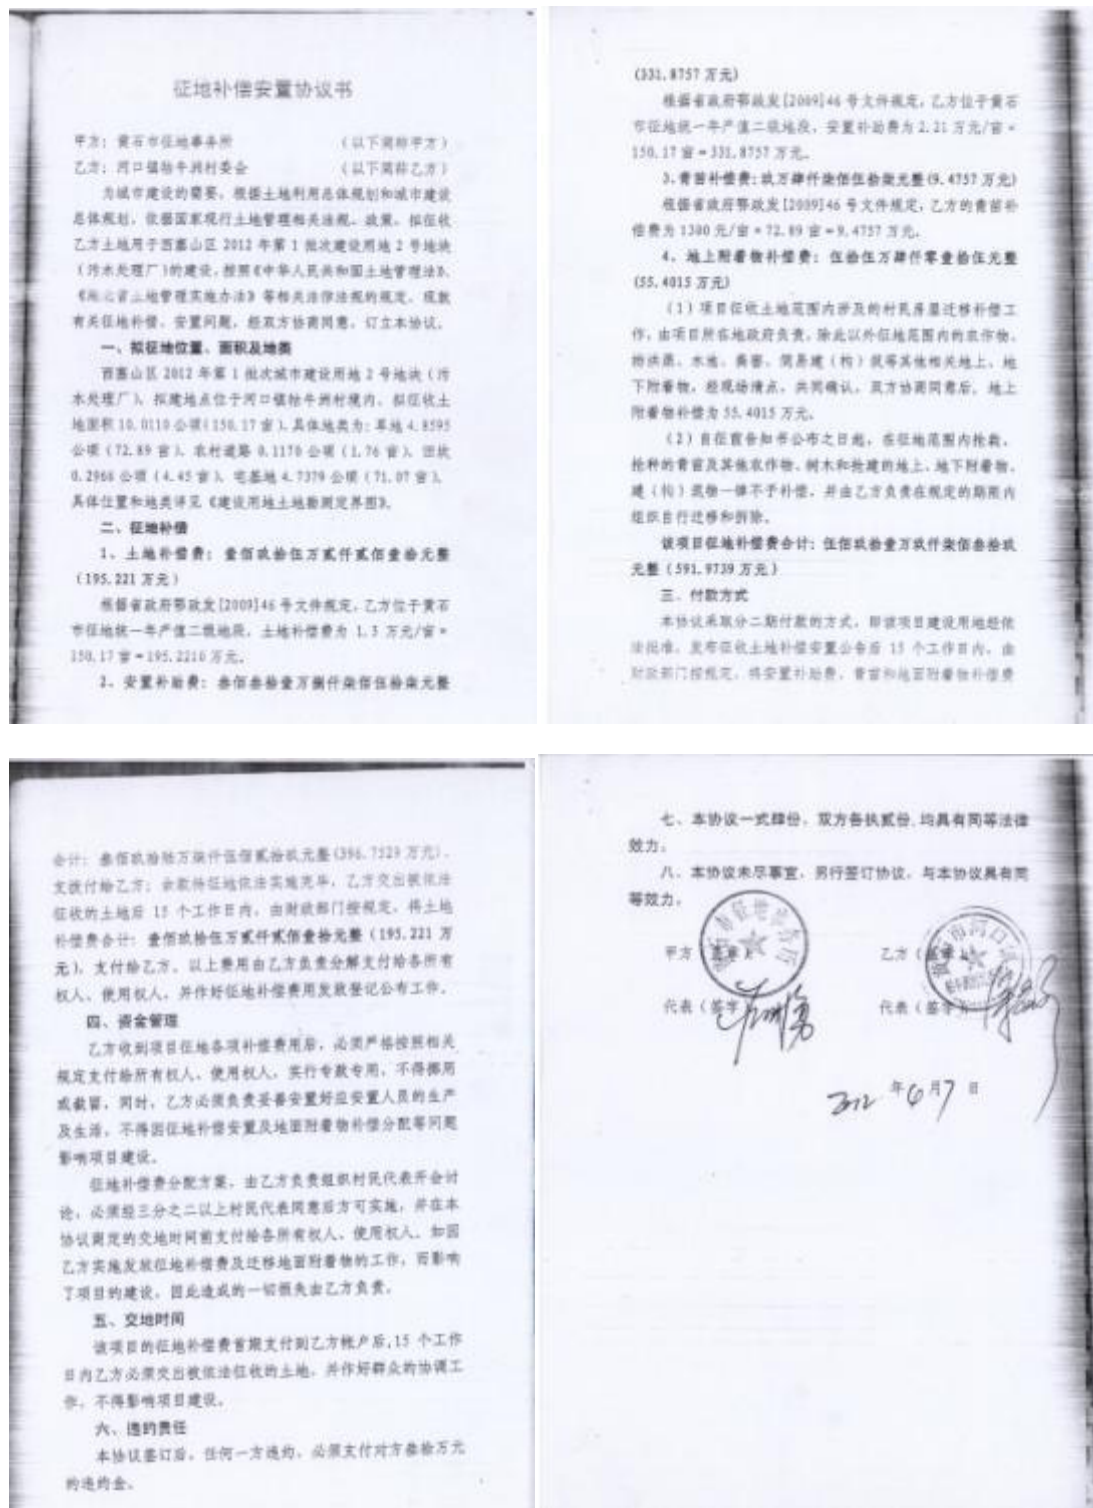 征地补偿安置协议书
甲方：黄石市征地事务所 （以下简称甲方）
乙方：河口镇牯牛洲村委会 （以下简称乙方）
为城市建设的需要，根据土地利用总体规划和城市建设
总体规划，依据国家现行土地管理相关法规、政策，拟征收
乙方土地用于西塞山区 2012 年第 1 批次建设用地 2 号地块
（污水处理厂）的建设，按照《中华人民共和国土地管理法》、
《湖北省土地管理实施办法》等相关法律法规的规定，现就
有关征地补偿、安置问题，经双方协商同意，订立本协议。
一、拟征地位置、面积及地类
西塞山区 2012 年第 1 批次城市建设用地 2 号地块（污
水处理厂），拟建地点位于河口镇牯牛洲村境内，拟征收土
地面积 10.0110 公顷（150.17 亩）。具体地类为：旱地 4.8595
公顷（72.89 亩）、农村道路 0.1170 公顷（1.76 亩）、田坎
0.2966 公顷（4.45 亩）、宅基地 4.7379 公顷（71.07 亩）。
具体位置和地类详见《建设用地土地勘测定界图》。
二、征地补偿
1、土地补偿费：壹佰玖拾伍万贰仟贰佰壹拾元整
（195.221 万元）
根据省政府鄂政发[2009]46 号文件规定，乙方位于黄石
市征地统一年产值二级地段，土地补偿费为 1.3 万元/亩×
150.17 亩＝195.2210 万元。
2、安置补助费：叁佰叁拾壹万捌仟柒佰伍拾柒元整
(331.8757 万元)
根据省政府鄂政发[2009]46 号文件规定，乙方位于黄石
市征地统一年产值二级地段，安置补助费为 2.21 万元/亩×
150.17 亩＝331.8757 万元。
3、青苗补偿费：玖万肆仟柒佰伍拾柒元整(9.4757 万元)
根据省政府鄂政发[2009]46 号文件规定，乙方的青苗补
偿费为 1300 元/亩×72.89 亩＝9.4757 万元。
4、地上附着物补偿费：伍拾伍万肆仟零壹拾伍元整
(55.4015 万元)
（1）项目征收土地范围内涉及的村民房屋迁移补偿工
作，由项目所在地政府负责，除此以外征地范围内的农作物、
粉洪渠、水池、粪窖、简易建（构）筑等其他相关地上、地
下附着物，经现场清点，共同确认，双方协商同意后，地上
附着物补偿为 55.4015 万元。
（2）自征前告知书公布之日起，在征地范围内抢栽、
抢种的青苗及其他农作物、树木和抢建的地上、地下附着物、
建（构）筑物一律不予补偿，并由乙方负责在规定的期限内
组织自行迁移和拆除。
该项目征地补偿费合计：伍佰玖拾壹万玖仟柒佰叁拾玖
元整（591.9739 万元）
三、付款方式
本协议采取分二期付款的方式，即该项目建设用地经依
法批准，发布征收土地补偿安置公告后 15 个工作日内，由
财政部门按规定，将安置补助费、青苗和地面附着物补偿费
合计：叁佰玖拾陆万柒仟伍佰贰拾玖元整(396.7529 万元)，
支拨付给乙方；余款待征地依法实施完毕，乙方交出被依法
征收的土地后 15 个工作日内，由财政部门按规定，将土地
补偿费合计：壹佰玖拾伍万贰仟贰佰壹拾元整（195.221 万
元），支付给乙方。以上费用由乙方负责分解支付给各所有
权人、使用权人，并作好征地补偿费用发放登记公布工作。
四、资金管理
乙方收到项目征地各项补偿费用后，必须严格按照相关
规定支付给所有权人、使用权人，实行专款专用，不得挪用
或截留，同时，乙方必须负责妥善安置好应安置人员的生产
及生活，不得因征地补偿安置及地面附着物补偿分配等问题
影响项目建设。
征地补偿费分配方案，由乙方负责组织村民代表开会讨
论，必须经三分之二以上村民代表同意后方可实施，并在本
协议商定的交地时间前支付给各所有权人、使用权人，如因
乙方实施发放征地补偿费及迁移地面附着物的工作，而影响
了项目的建设，因此造成的一切损失由乙方负责。
五、交地时间
该项目的征地补偿费首期支付到乙方帐户后，15 个工作
日内乙方必须交出被依法征收的土地，并作好群众的协调工
作，不得影响项目建设。
六、违约责任
本协议签订后，任何一方违约，必须支付对方叁拾万元
的违约金。
七、本协议一式肆份，双方各执贰份，均具有同等法律
效力。
八、本协议未尽事宜，另行签订协议，与本协议具有同
等效力。
甲方（盖章） 乙方（盖章）
代表（签字） 代表（签字）
2012 年 6 月 7 日